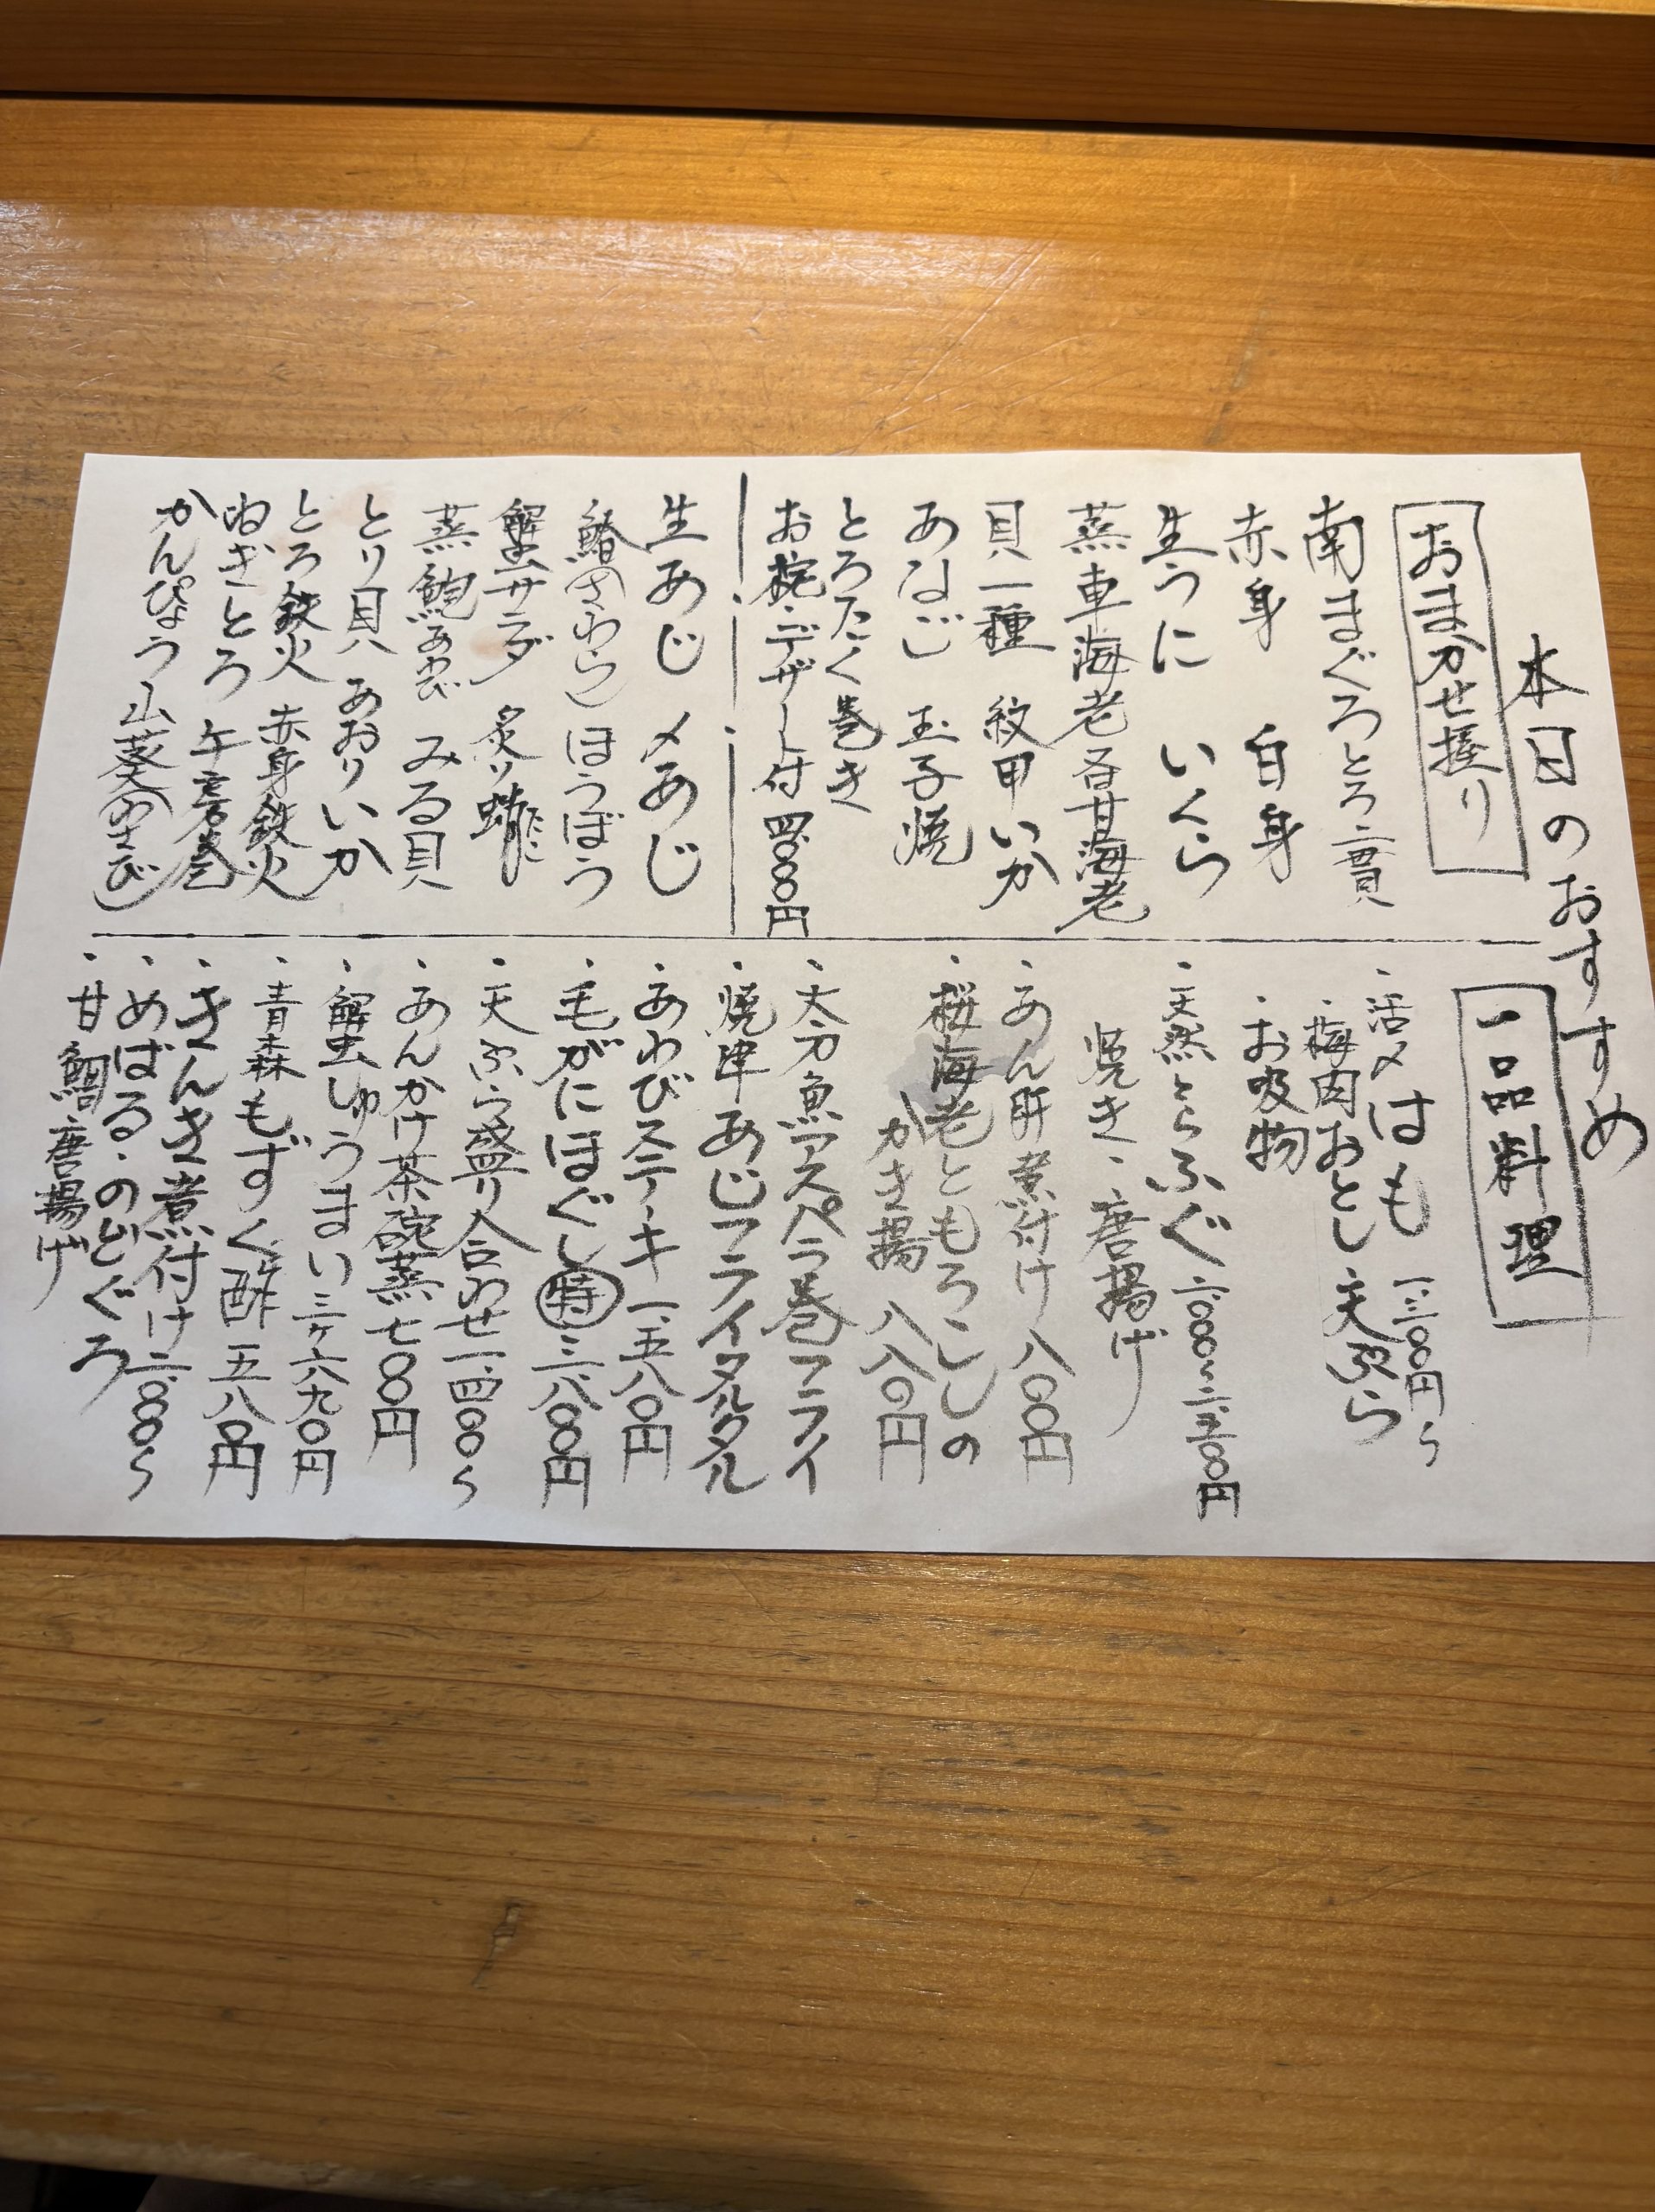 本日のおすすめ
おまかせ握り
南まぐろとろ二貫
赤身 白身
生うに いくら
蒸車海老 甘海老
貝一種 紋甲いか
あなご 玉子焼
とろたく巻き
お椀・デザート付 四、〇〇〇円
生あじ 〆あじ
鰆(さわら) ほうぼう
蟹サラダ 炙り
蒸鮑あわび みる貝
とり貝 あおりいか
とろ鉄火 赤身鉄火
ねぎとろ
かんぴょう 山葵(わさび)
一品料理
・活〆はも 円ら
・梅肉おとし・天ぷら
・お吸物
・天然とらふぐ
焼き・唐揚げ
・あん肝煮付け 八〇〇円
・桜海老ともろこしの
かき揚 八八〇円
・太刀魚アスペラ巻フライ
・焼津あじフライタルタル
・あわびステーキ 一、五八〇円
・毛がにほぐし 特 三、八〇〇円
・天ぷら盛り合わせ 一、四〇〇ら
・あんかけ茶碗蒸 七〇〇円
・蟹しゅうまい 三ヶ 六九〇円
・青森もずく酢 五八〇円
・きんき煮付け
・めばる・のどぐろ
・甘鯛唐揚げ